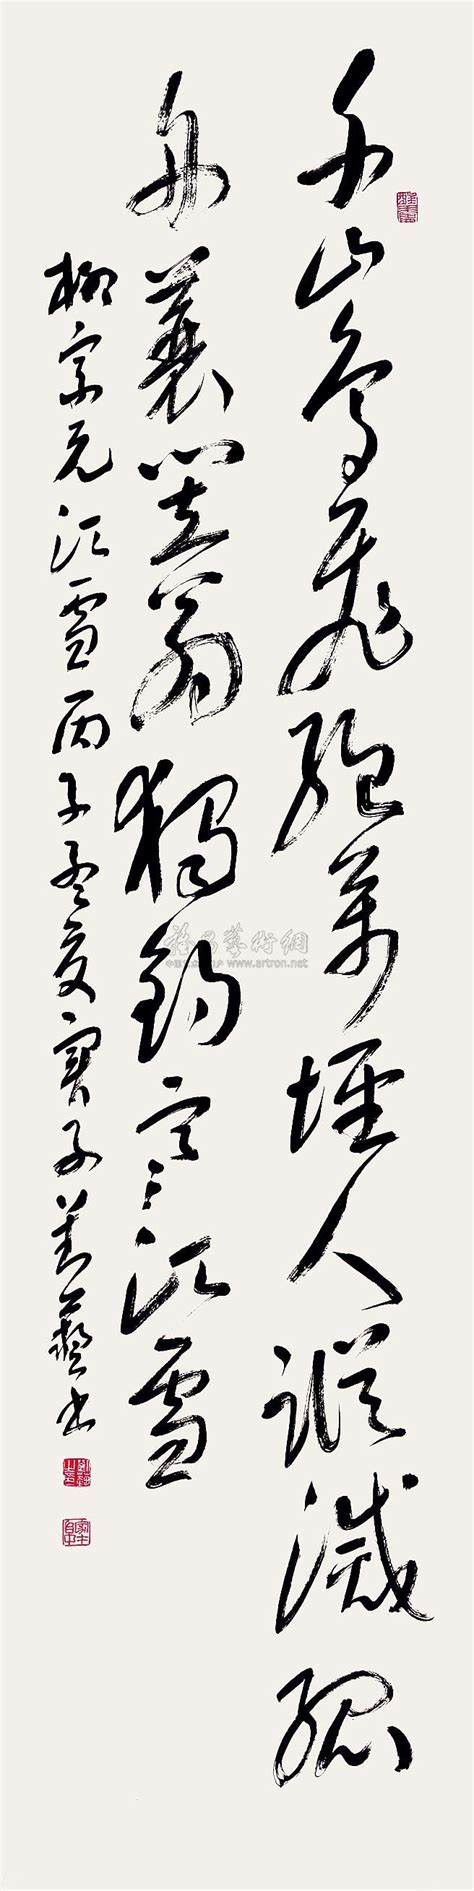 千山鳥飛絕萬徑人蹤滅孤
舟蓑笠翁獨釣寒江雪
柳宗元江雪丙子孟夏寶子藝書
雅昌藝術網
www.artron.net